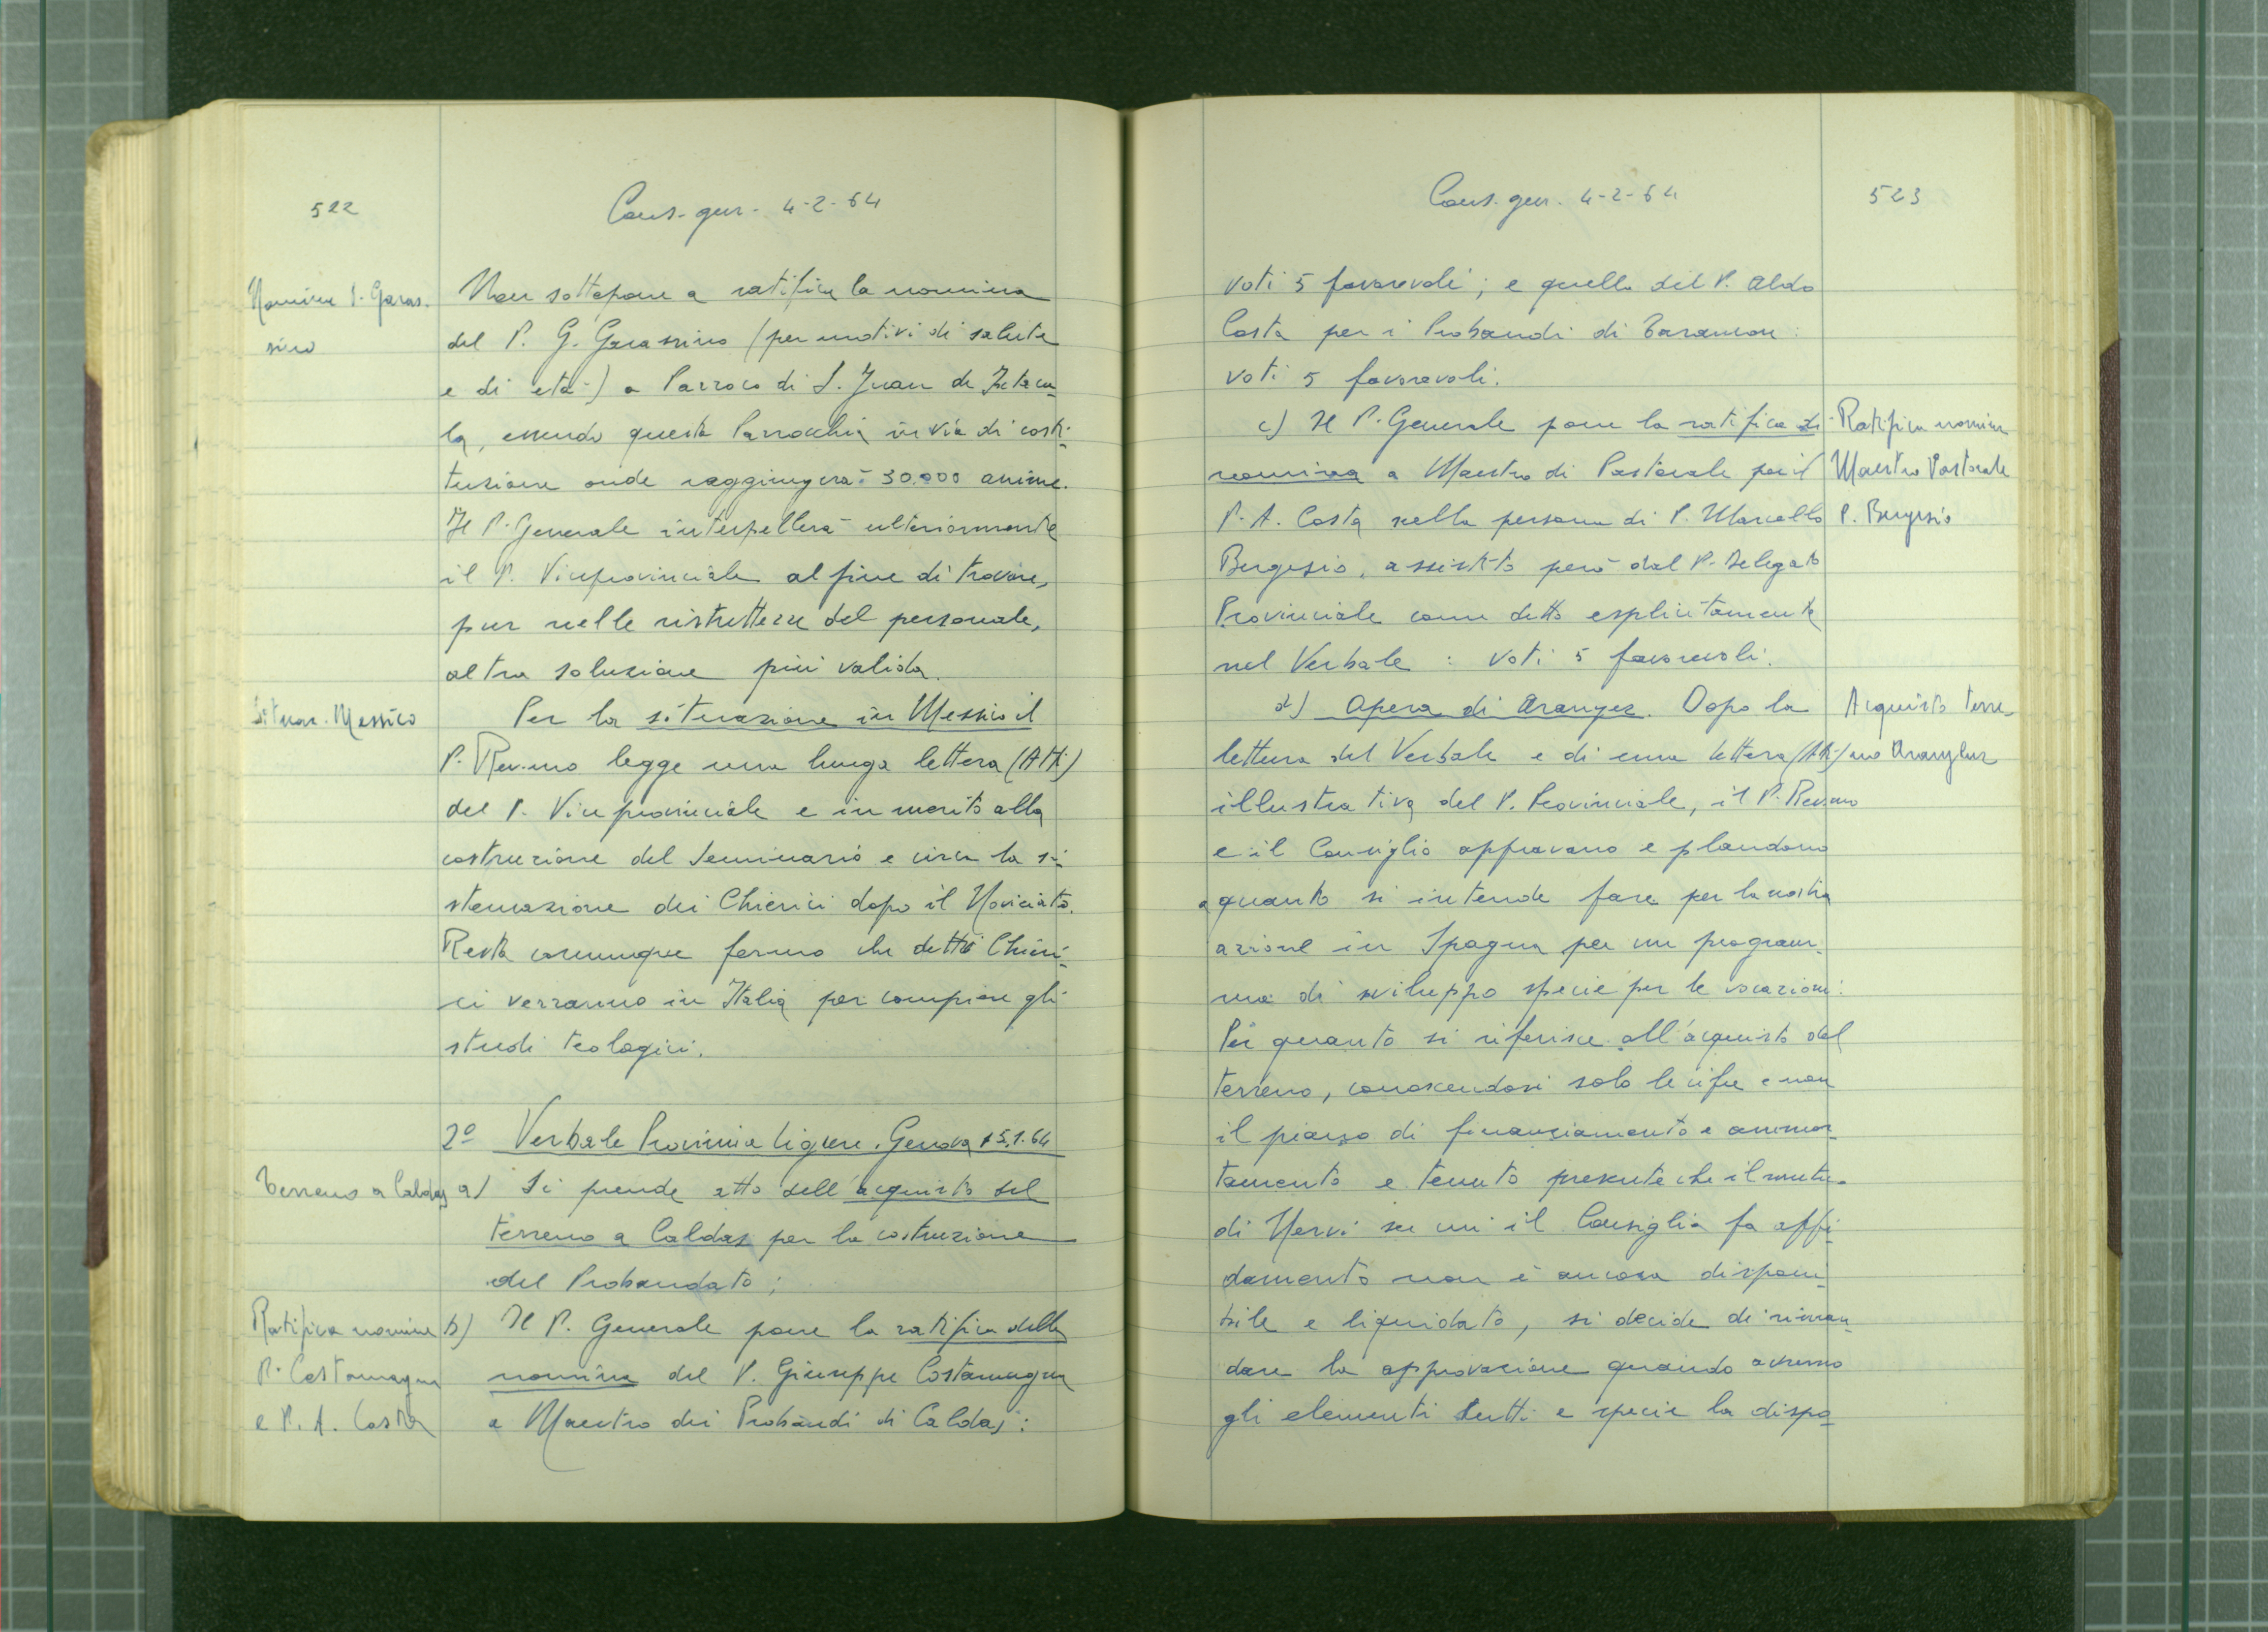 522
Cons. gen. 4-2-64
Nomina P. Garas-
sino
Non sottopone a ratifica la nomina
del P. G. Garassino (per motivi di salute
e di età) a Parroco di S. Juan de Ixtaca-
la, essendo questa Parrocchia in via di costi-
tuzione onde raggiungerà 30.000 anime.
Il P. Generale interpellerà ulteriormente
il P. Viceprovinciale al fine di trovare,
pur nelle ristrettezze del personale,
altra soluzione più valida.
Situaz. Messico
Per la situazione in Messico il
P. Rev.mo legge una lunga lettera (Atti)
del P. Viceprovinciale e in merito alla
costruzione del Seminario e circa la si-
stemazione dei Chierici dopo il Noviciato.
Resta comunque fermo che detti Chieri-
ci verranno in Italia per compiere gli
studi teologici.
2º Verbale Provincia Ligure. Genova 15.1.64
Terreno a Caldas
a) Si prende atto dell'acquisto del
terreno a Caldas per la costruzione
del Probandato;
Ratifica nomine
P. Costamagna
e P. A. Costa
b) Il P. Generale pone la ratifica della
nomina del P. Giuseppe Costamagna
a Maestro dei Probandi di Caldas:
Cons. gen. 4-2-64
523
voti 5 favorevoli; e quella del P. Aldo
Costa per i Probandi di
voti 5 favorevoli.
c) Il P. Generale pone la ratifica di
nomina a Maestro di Pastorale per il
P. A. Costa nella persona di P. Marcello
Bergesio, assistito però dal P. Delegato
Provinciale come detto esplicitamente
nel Verbale: voti 5 favorevoli.
Ratifica nomina
Maestro Pastorale
P. Bergesio
d) Opera di Aranjez. Dopo la
lettura del Verbale e di una lettera (Atti)
illustrativa del P. Provinciale, il P. Rev.mo
e il Consiglio approvano e plaudono
a quanto si intende fare per la nostra
azione in Spagna per un program-
ma di sviluppo specie per le vocazioni.
Per quanto si riferisce all'acquisto del
terreno, conoscendosi solo le cifre e non
il piano di finanziamento e ammor-
tamento e tenuto presente che il mutuo
di Nervi su cui il Consiglio fa affi-
damento non è ancora disponi-
bile e liquidato, si decide di riman-
dare la approvazione quando avremo
gli elementi tutti e specie la dispo-
Acquisto terre-
no